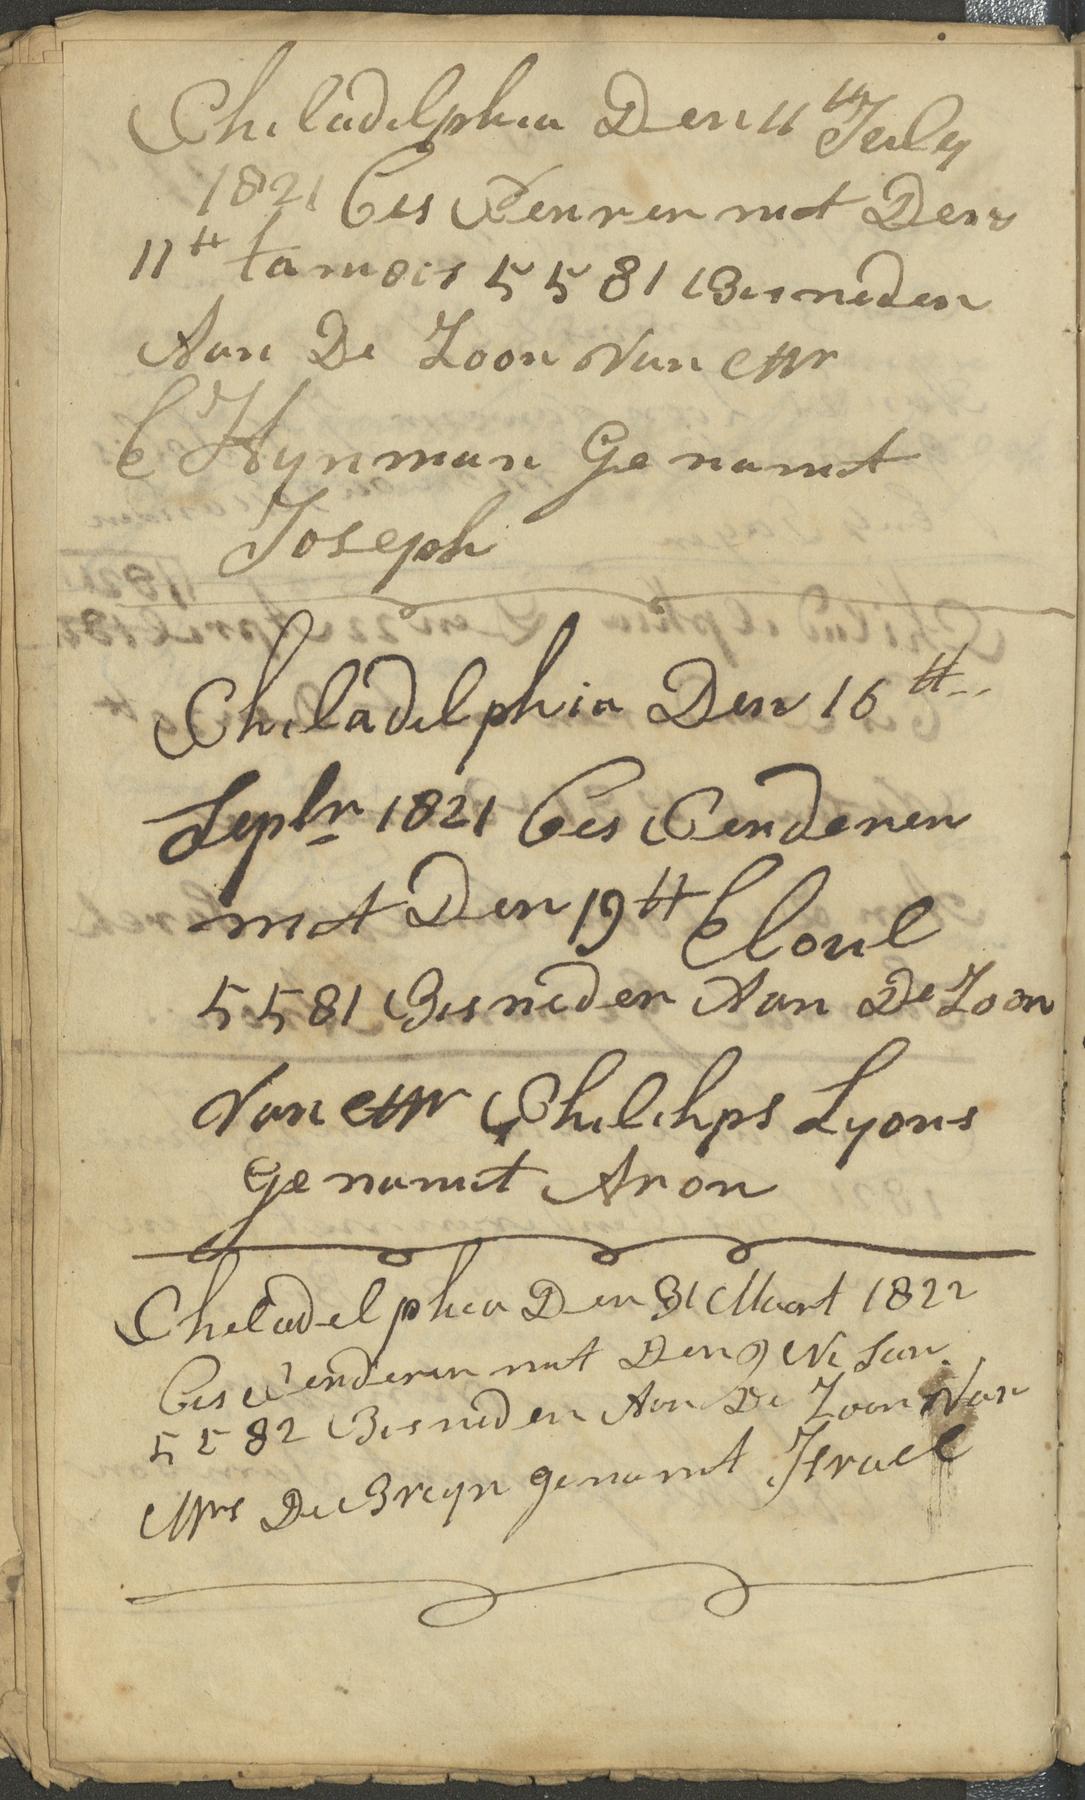 Philadelphia Den 11th July
1821 Cor Renren met Den
11th tamois 5581 Besneden
Aan De Zoon Van Mr
E Hynman Genamt
Joseph
Philadelphia Den 16th
Septr 1821 Cor Renderen
met Den 19th Eloul
5581 Besneden Aan De Zoon
Van Mr Philihps Lyons
Genamt Aron
Philadelphia Den 31 Maart 1822
Cor Renderen met Den 9 Nisan
5582 Besneden Aan De Zoon Van
Mrs De Breyn genamt Israel